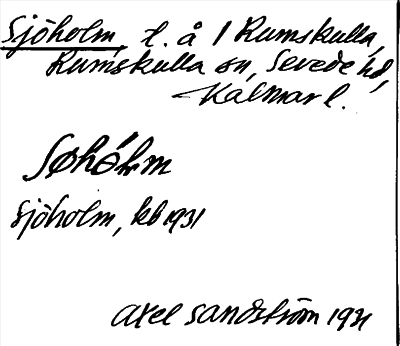 Sjöholm, t. å 1 Rumskulla,
Rumskulla sn, Sevede hd,
Kalmar l.
Sjöholm, kb 1931
Axel Sandström 1931